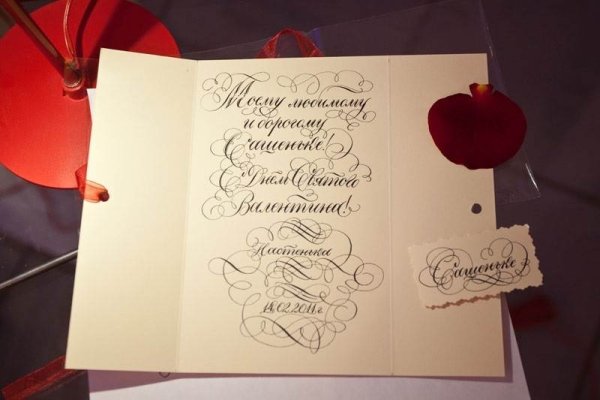 Моему любимому
и дорогому
Сашеньке!
С Днём Святого
Валентина!
Настенька
14.02.2011г.
Сашеньке